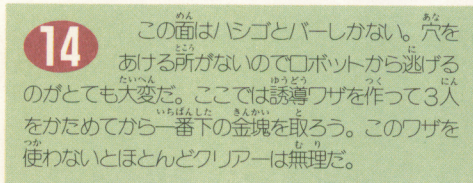 14
この面はハシゴとバーしかない。穴を
あける所がないのでロボットから逃げる
のがとても大変だ。ここでは誘導ワザを作って3人
をかためてから一番下の金塊を取ろう。このワザを
使わないとほとんどクリアーは無理だ。